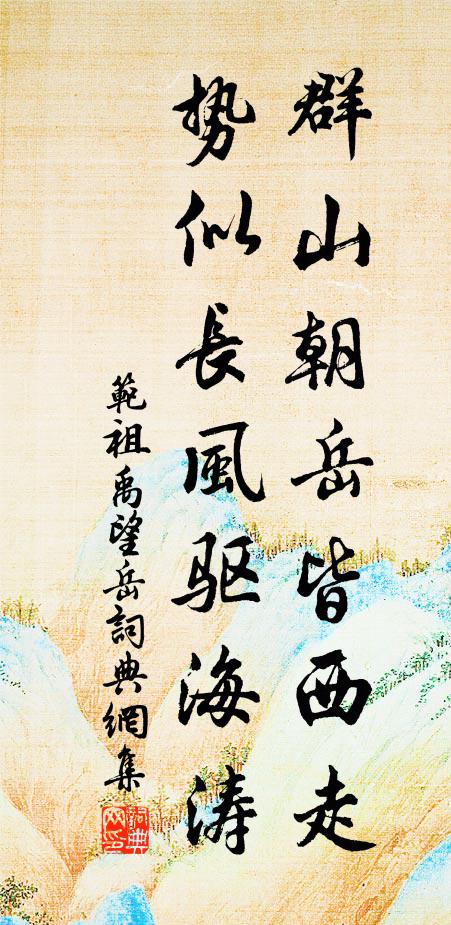 群山朝岳皆西走
势似長風驱海涛
範祖禹望岳詞典網集
詞典網印